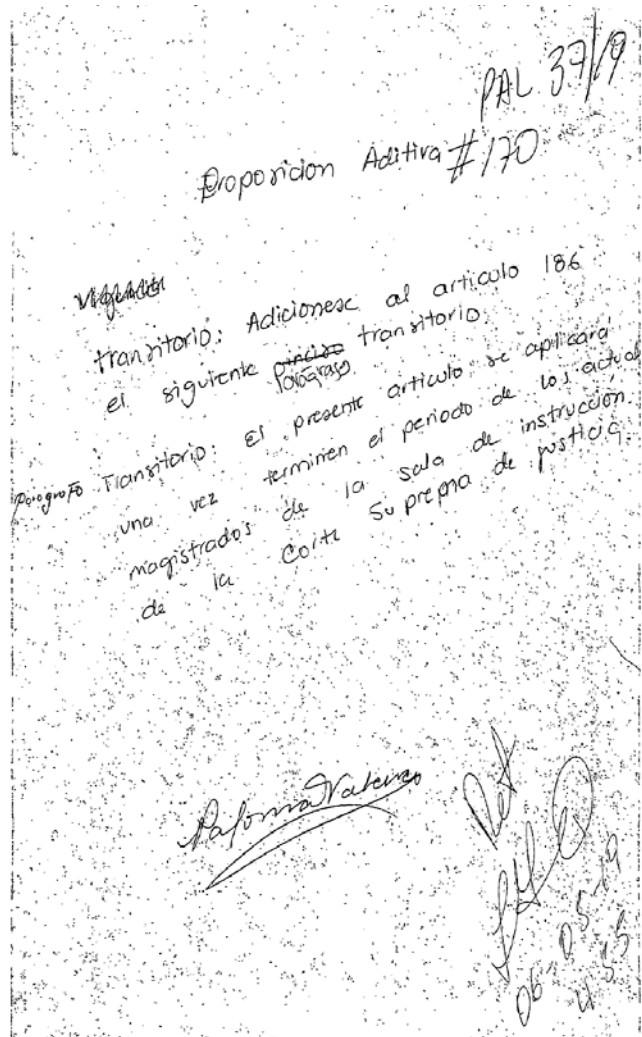 PAL 37/19
Proposicion Aditiva #170
transitorio: Adicionese al articulo 186
el siguiente inciso parágrafo transitorio.
Paragrafo Transitorio: El presente articulo se aplicará
una vez terminen el periodo de los actual
magistrados de la sala de instrucción
de la Corte Suprema de justicia.
Paloma Valencia
06-05-19
4:55